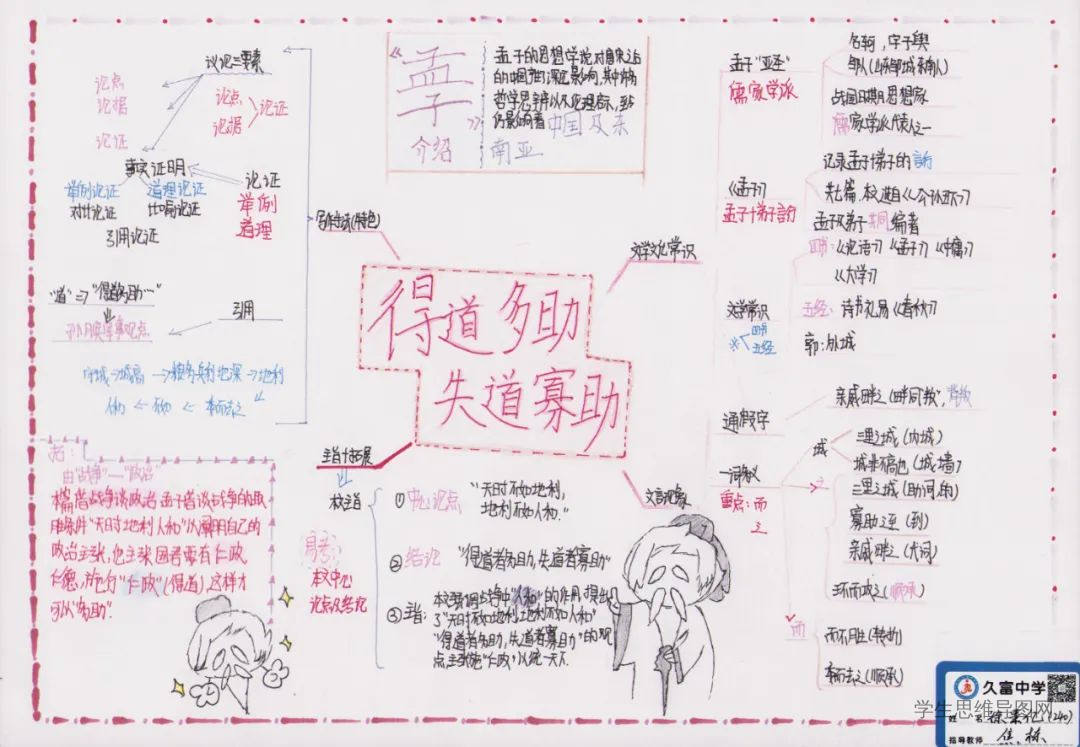 《孟子》
介绍
孟子的思想学说对后来之
的中国有深远影响,其中的
哲学思辨以及伦理启示,至今
仍影响着中国及东
南亚
得道多助
失道寡助
写作特点(特色)
议论三要素
论点
论据
论证
论点
论据
论证
事实证明
举例论证
道理论证
对比论证
比喻论证
引用论证
论证
举例
道理
引用
"道"=>"得道多助…"
城高
地利
委而去之
文学文化常识
孟子"亚圣"
儒家学派
名轲,字子舆
邹人(山东邹城东南人)
战国时期思想家
儒家学派代表人之一
《孟子》
孟子+弟子言行
记录孟子+弟子的言行
共七篇.本文选自《公孙丑下》
孟子及弟子共同编著
文学常识
※
四书
五经
四书:《论语》《孟子》《中庸》
《大学》
五经:诗书礼易《春秋》
郭:外城
文言现象
通假字
亲戚畔之(畔同"叛",背叛)
一词多义
重点:而
之
城
三里之城(内城)
城非不高也(城墙)
之
三里之城(助词,的)
寡助之至(到)
亲戚畔之(代词)
环而攻之(顺承)
而
而不胜(转折)
委而去之(顺承)
主旨+拓展
本文主旨
易考:
本文中心
论点及结论
①中心论点
"天时不如地利,
地利不如人和."
②结论
"得道者多助,失道者寡助"
③主旨:
本文强调战争中"人和"的作用,提出
了"天时不如地利,地利不如人和"
"得道者多助,失道者寡助"的观
点,主张施"仁政"以统一天下.
拓:
由"战争"—"政治"
本篇借战争谈政治,孟子借谈战争的取
胜条件"天时地利人和"从而阐明自己的
政治主张,也主张国君要有仁政
仁德,施行"仁政"(得道),这样才
可以"多助".
久富中学
学生思维导图网
姓名
指导教师